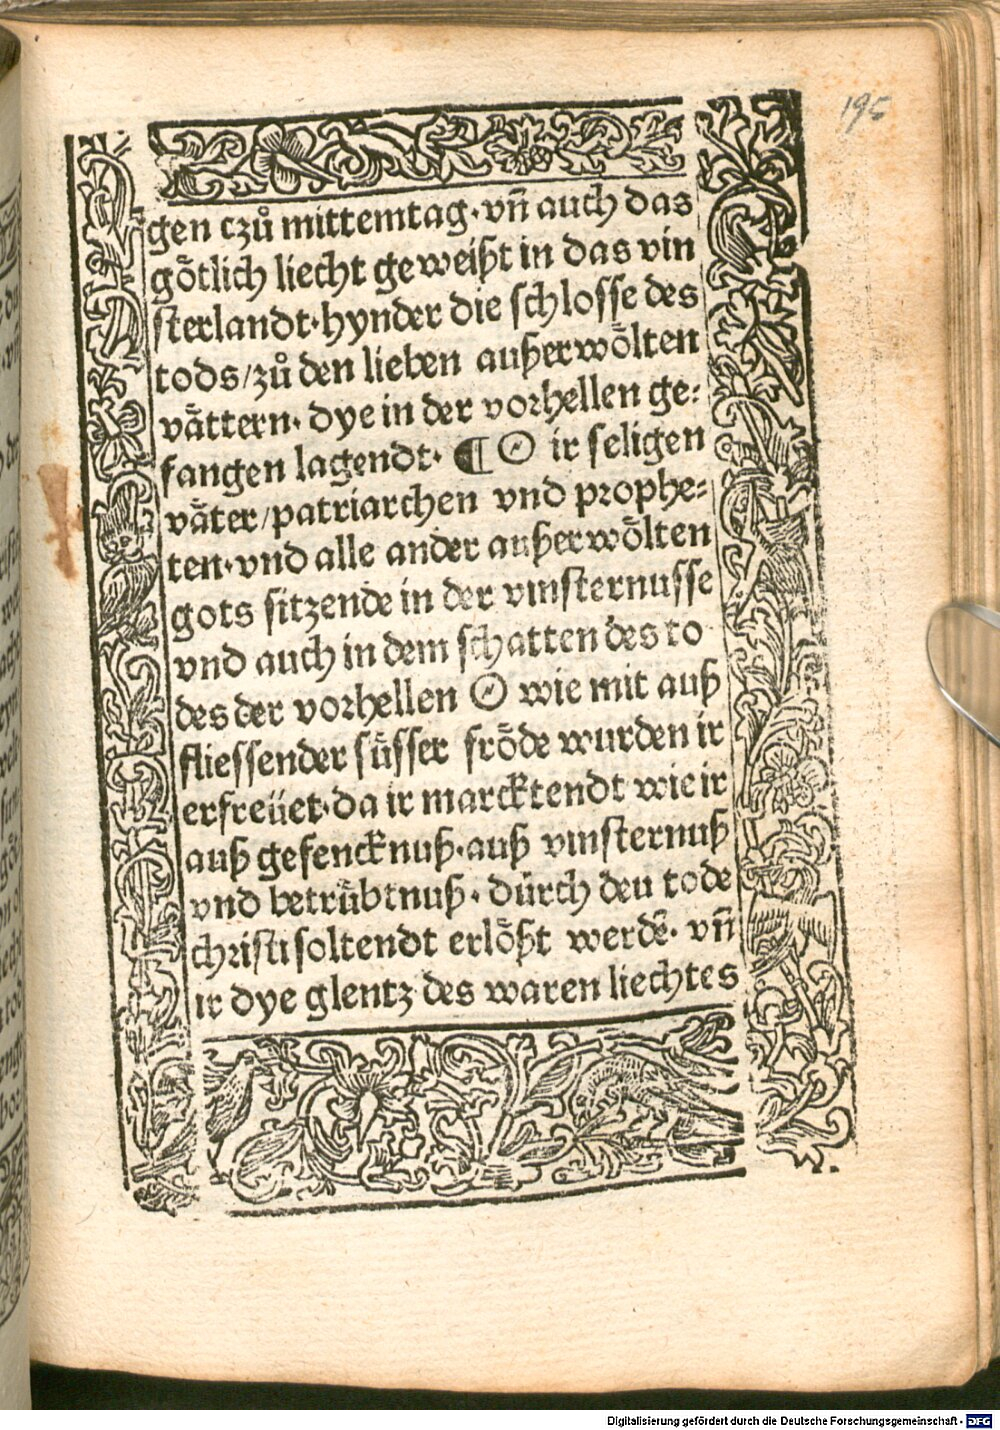 195
gen czů mittemtag·vñ auch das
gȫtlich liecht geweißt in das vin
sterlandt·hynder die schlosse des
tods/zů den lieben außerwoͤlten
vaͤttern· dye in der vorhellen ge⸗
fangen lagendt· ¶ O ir seligen
vaͤter/patriarchen vnd prophe⸗
ten·vnd alle ander außerwoͤlten
gots sitzende in der vinsternusse
vnd auch in dem schatten des to
des der vorhellen O wie mit auß
fliessender suͤsser froͤde wurden ir
erfreüet·da ir marcktendt wie ir
auß gefencknuß·auß vinsternuß
vnd betruͤbtnuß· dúrch den tode
christi soltendt erloͤßt werdē· vñ
ir dye glentz des waren liechtes
Digitalisierung gefördert durch die Deutsche Forschungsgemeinschaft - DFG